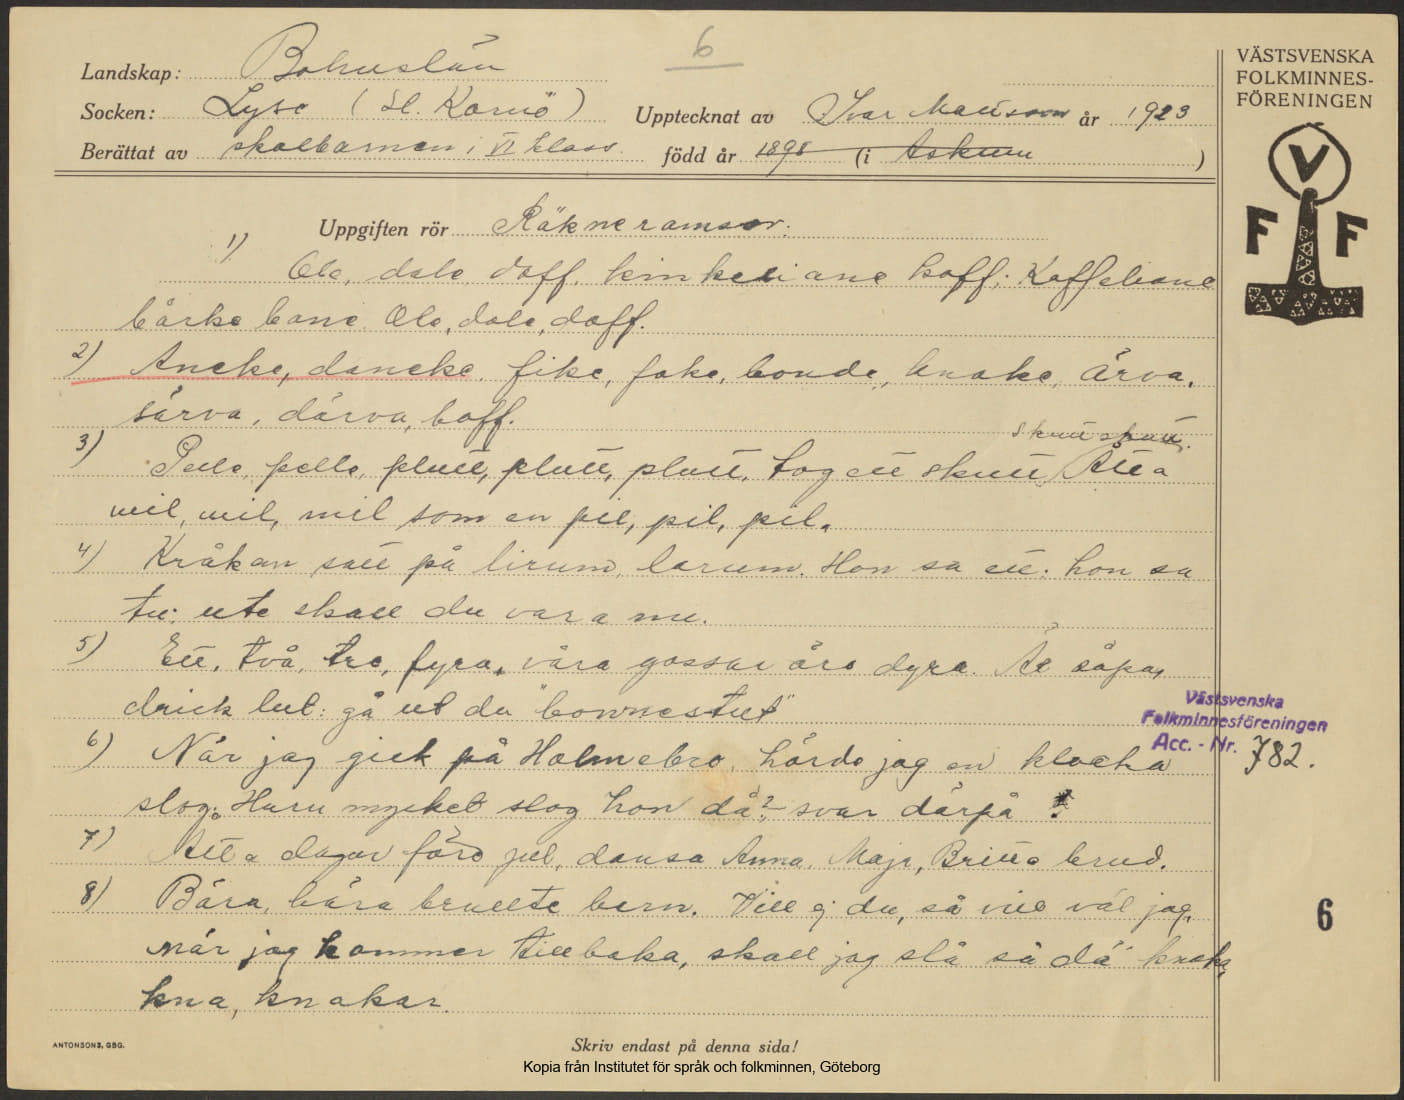 6
Landskap: Bohuslän
Socken: Lyse (St. Kornö) Upptecknat av Ivar Mattsson år 1923
Berättat av skolbarnen i VI klass. född år 1898 (i Askum)
VÄSTSVENSKA
FOLKMINNES-
FÖRENINGEN
V
F F
Uppgiften rör Räkneramsor.
1) Ole, dole, doff. kinke ane koff; Koffeliane
bårke bane. Ole, dole, doff.
2) Aneke, daneke, fike, fake, bonde, knake, ärva,
särva, därva, boff.
3) Pelle, pelle, plutt, plutt, plutt, tog ett skutt, Åtta
mil, mil, mil som en pil, pil, pil.
4) Kråkan satt på lirum, larum. Hon sa ett: hon sa
tu: ute skall du vara nu.
5) Ett, två, tre, fyra, våra gossar äro dyra. Ät såpa,
drick lut: gå ut du
6) När jag gick på Holmebro, hörde jag en klocka
slog. Huru mycket slog hon då? svar därpå
7) Åtta dagar före jul, dansa Anna, Maja, Britta brud.
8) Bära, bära brutte barn. Vill ej du, så vill väl jag,
när jag kommer tillbaka, skall jag slå så då knaka,
kna, knakar.
Västsvenska
Folkminnesföreningen
Acc. - Nr. 782.
6
ANTONSONS, GBG.
Skriv endast på denna sida!
Kopia från Institutet för språk och folkminnen, Göteborg